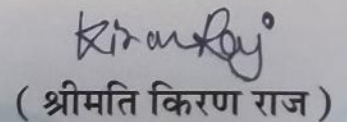 Kiran Raj
( श्रीमति किरण राज )